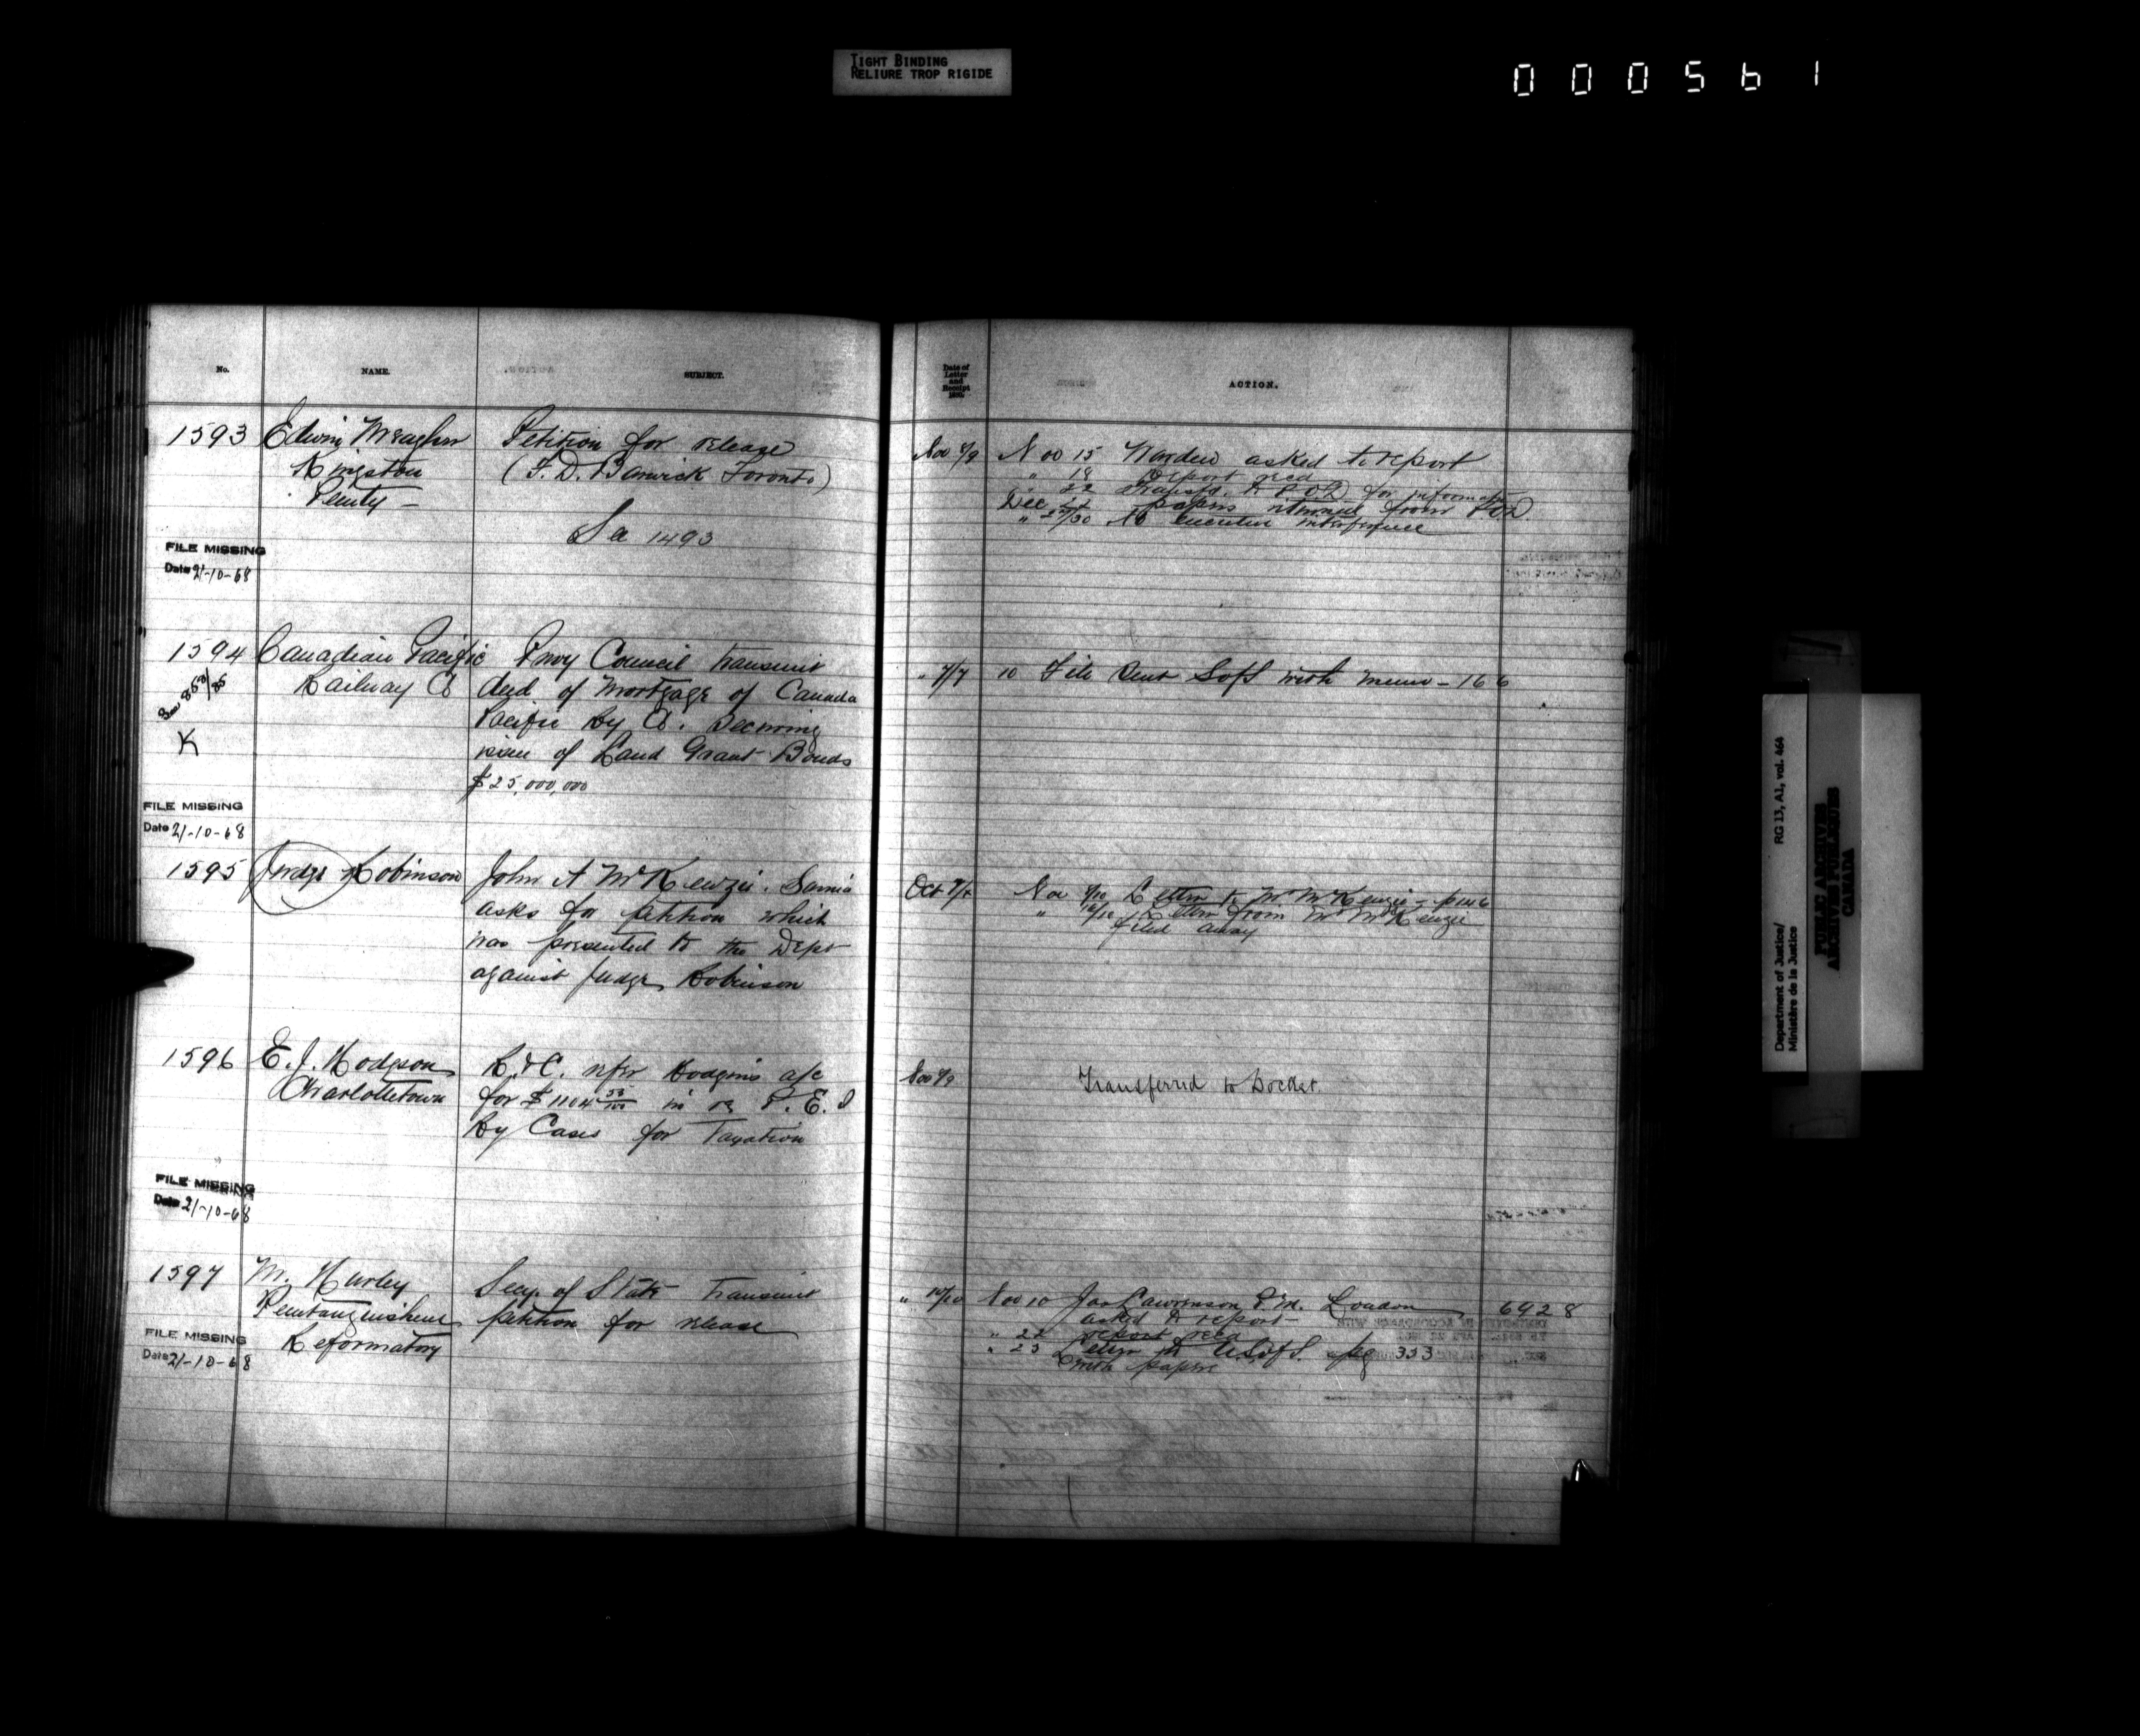 TIGHT BINDING
RELIURE TROP RIGIDE
000561
No. NAME. SUBJECT.
1593 Edwin Meagher Petition for release
Kingston (F. D. Barwick Toronto)
Penity -
1493
FILE MISSING
Date 21-10-68
1594 Canadian Pacific Privy Council transmit
853/85 Railway Co deed of Mortgage of Canada
Pacific Ry Co. securing
K issue of Land Grant Bonds
$25,000,000
FILE MISSING
Date 21-10-68
1595 Judge Robinson John A McKenzie. Sarnia
asks for petition which
was presented to the Dept
against Judge Robinson
1596 E. J. Hodgson R. & C. refer Hodgins a/c
Charlottetown for $1104 in re P. E. I
Ry Cases for Taxation
FILE MISSING
Date 21-10-68
1597 M. Hurley Secy. of State transmit
Penetanguishene petition for release
FILE MISSING Reformatory
Date 21-10-68
Date of
Letter
and
Receipt
ACTION.
Nov 8/9 Nov 15 Warden asked to report
" 18 Report recd
" 22 Transfd. to for information
Dec papers returned from
" 29/30 No executive interference
" 7/7 10 File sent SofS with memo - 166
Oct Nov 9/10 Letter to Mr McKenzie - p 146
" Letter from Mr McKenzie
filed away
Nov 8/9 Transferred to Docket.
" 10/10 Nov 10 Jas Lawrenson P.M. London 6928
asked to report -
" 22 report recd
" 23 Letter to U.S of S. pg 333
with papers
Department of Justice/ RG 13, A1, vol. 464
Ministère de la Justice
PUBLIC ARCHIVES
ARCHIVES PUBLIQUES
CANADA